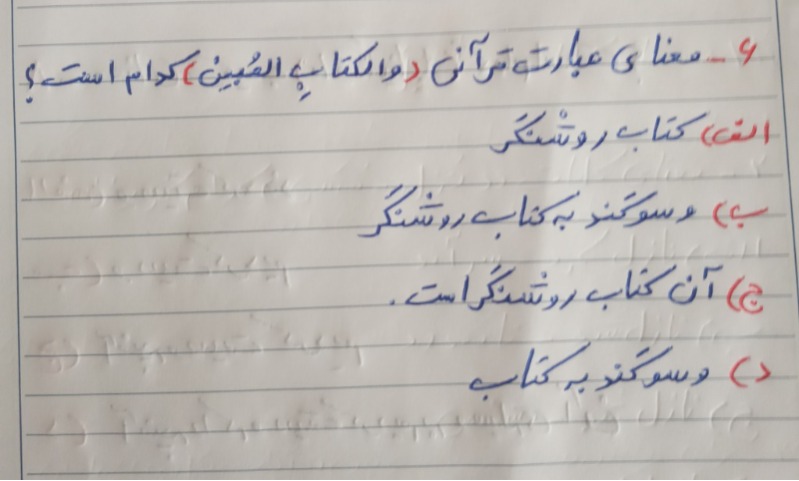 ۶- معنای عبارت قرآنی (والکتابِ المُبینِ) کدام است؟
الف) کتاب روشنگر
ب) وسوگند به کتاب روشنگر
ج) آن کتاب روشنگر است.
د) وسوگند به کتاب